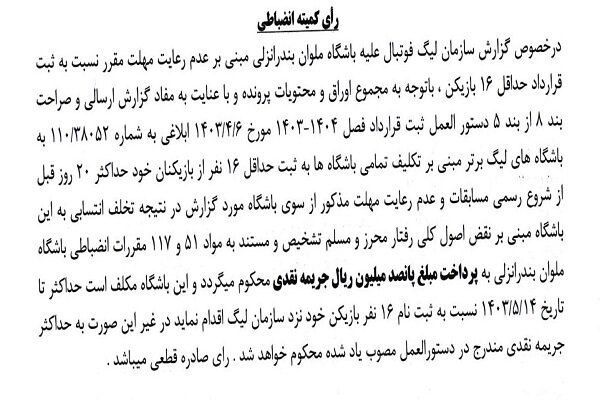 رأی کمیته انضباطی
درخصوص گزارش سازمان لیگ فوتبال علیه باشگاه ملوان بندرانزلی مبنی بر عدم رعایت مهلت مقرر نسبت به ثبت
قرارداد حداقل ۱۶ بازیکن ، باتوجه به مجموع اوراق و محتویات پرونده و با عنایت به مفاد گزارش ارسالی و صراحت
بند ۸ از بند ۵ دستور العمل ثبت قرارداد فصل ۱۴۰۴-۱۴۰۳ مورخ ۱۴۰۳/۴/۶ ابلاغی به شماره ۱۱۰/۳۸۰۵۲ به
باشگاه های لیگ برتر مبنی بر تکلیف تمامی باشگاه ها به ثبت حداقل ۱۶ نفر از بازیکنان خود حداکثر ۲۰ روز قبل
از شروع رسمی مسابقات و عدم رعایت مهلت مذکور از سوی باشگاه مورد گزارش در نتیجه تخلف انتسابی به این
باشگاه مبنی بر نقض اصول کلی رفتار محرز و مسلم تشخیص و مستند به مواد ۵۱ و ۱۱۷ مقررات انضباطی باشگاه
ملوان بندرانزلی به پرداخت مبلغ پانصد میلیون ریال جریمه نقدی محکوم میگردد و این باشگاه مکلف است حداکثر تا
تاریخ ۱۴۰۳/۵/۱۴ نسبت به ثبت نام ۱۶ نفر بازیکن خود نزد سازمان لیگ اقدام نماید در غیر این صورت به حداکثر
جریمه نقدی مندرج در دستورالعمل مصوب یاد شده محکوم خواهد شد . رای صادره قطعی میباشد .